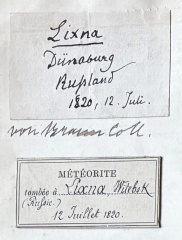 Lixna
Dünaburg
Rußland
1820, 12. Juli.
von Braun Coll.
MÉTÉORITE
tombée à Lixna, Witebsk
(Russie.)
12 Juillet 1820.